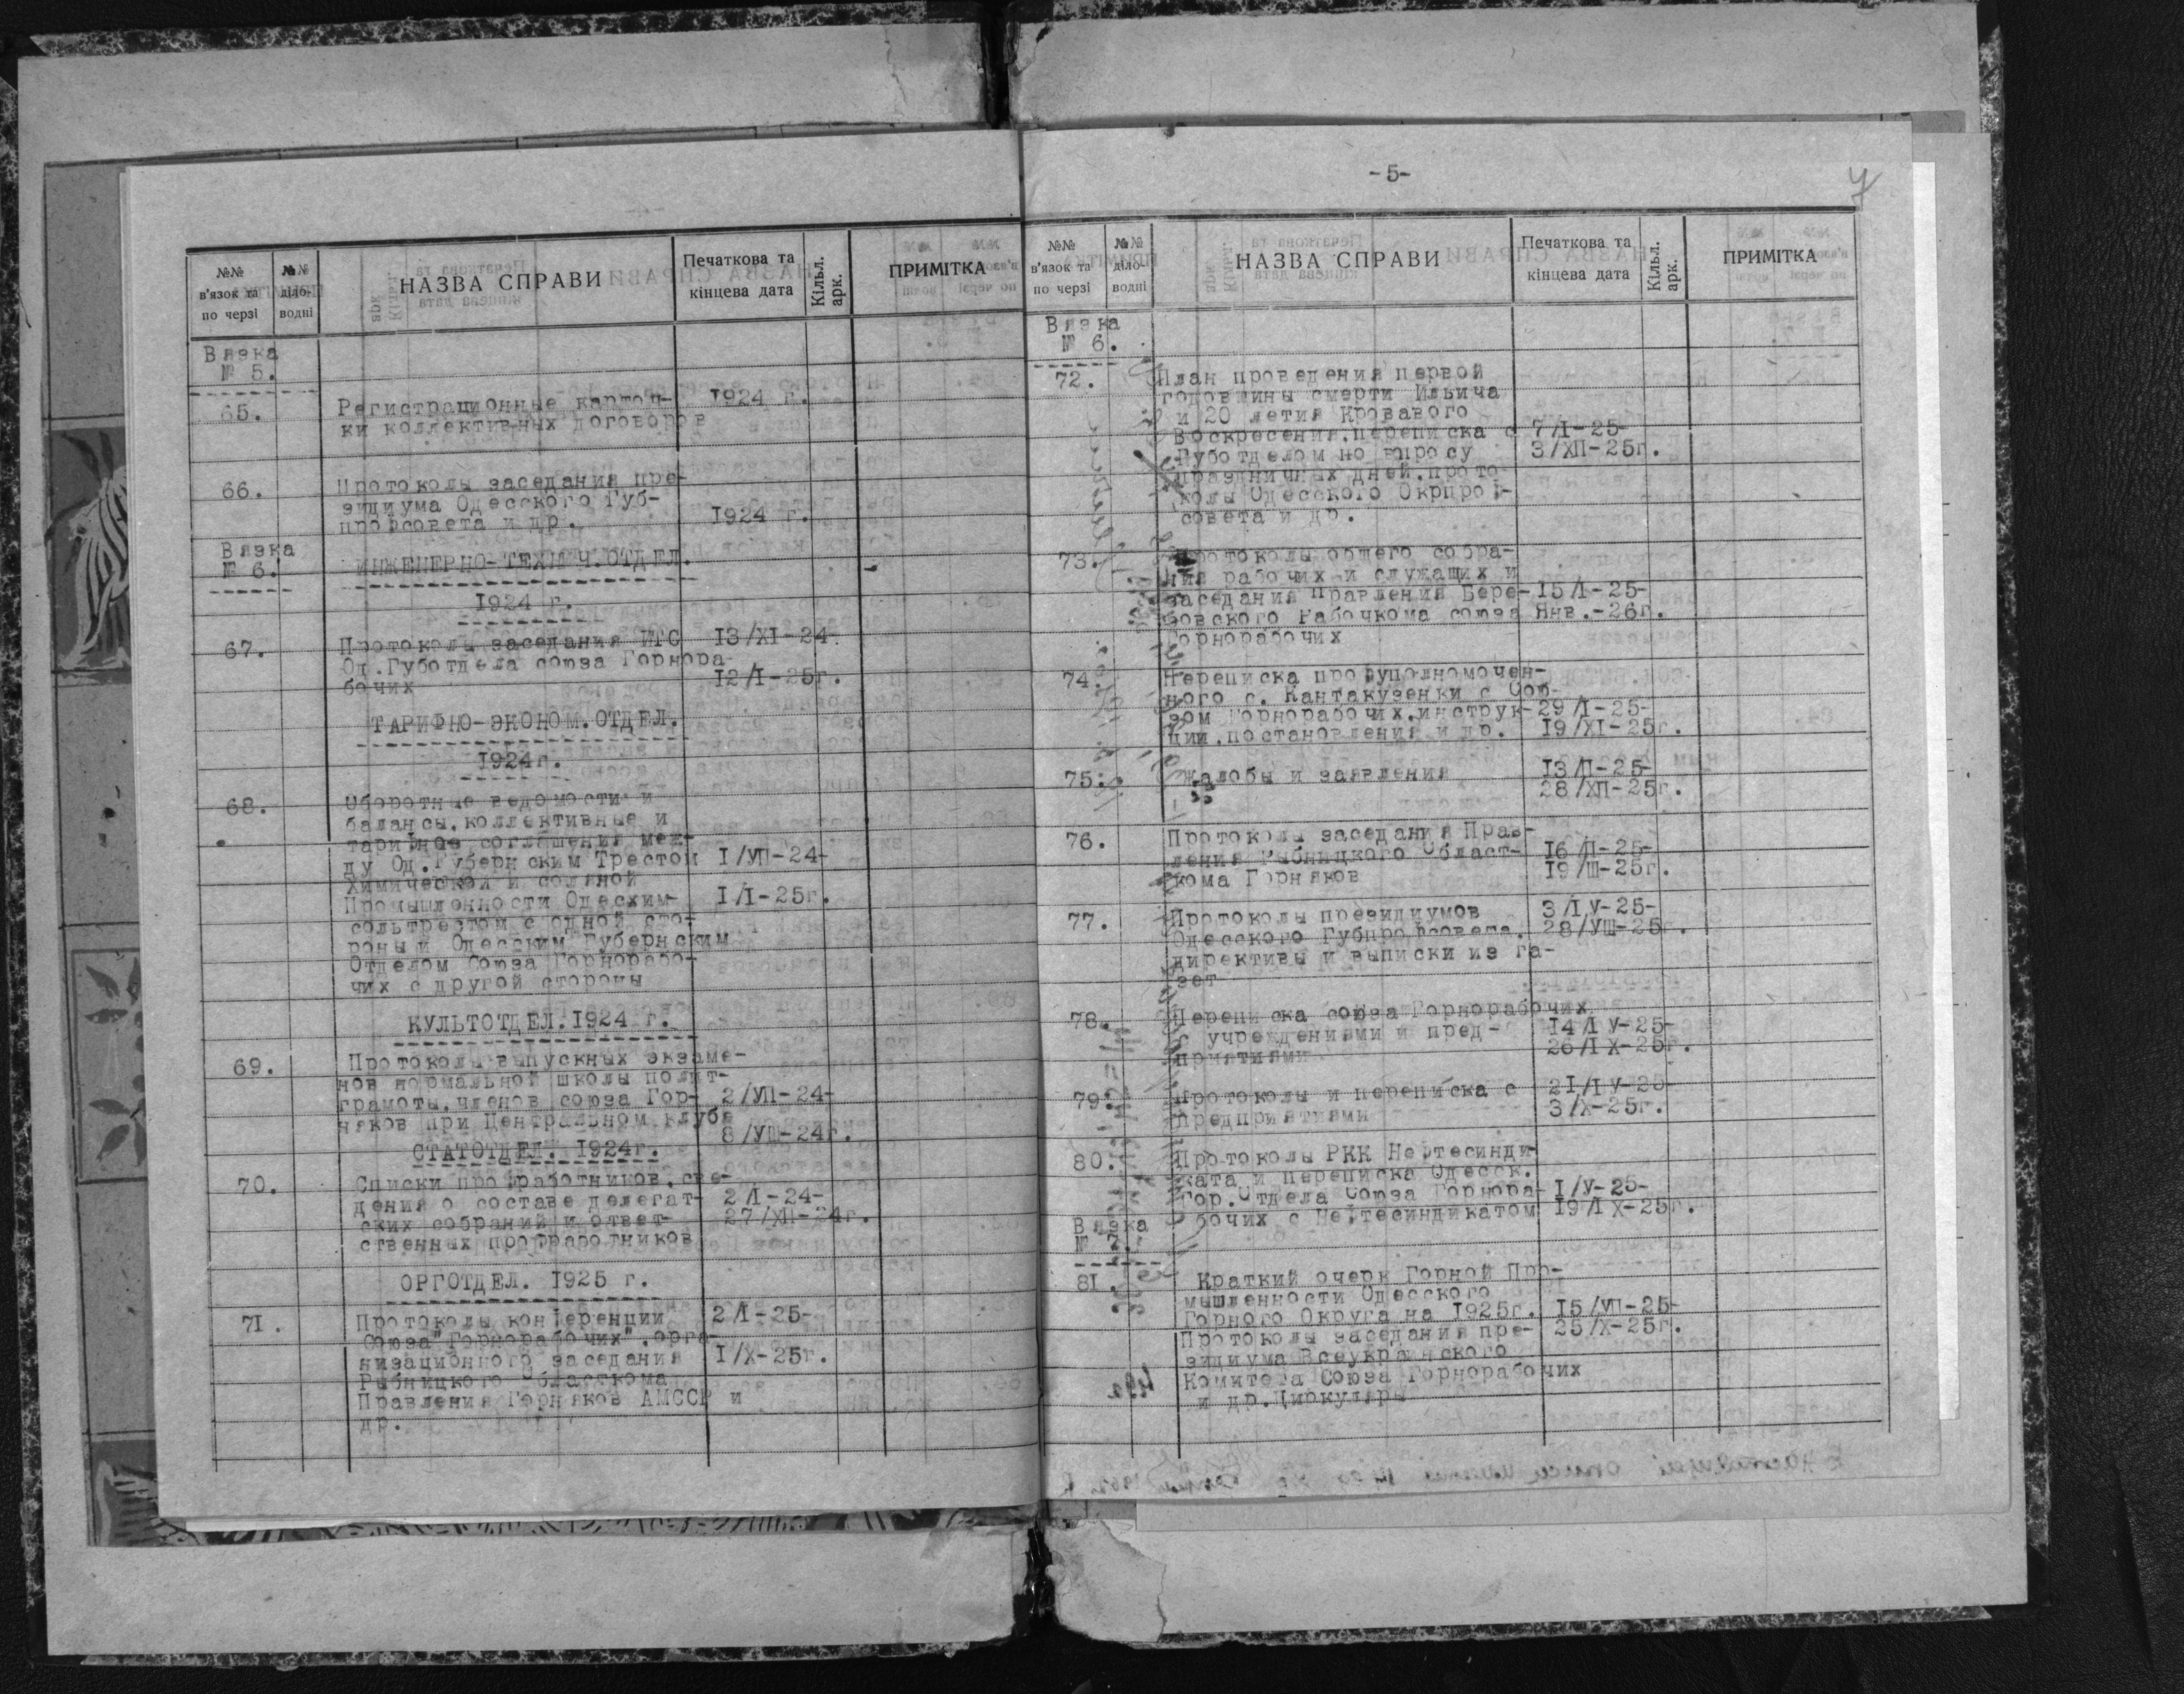 №№ в'язок та по черзі
№№ діло-водні
НАЗВА СПРАВИ
Печаткова та кінцева дата
Кільк. арк.
ПРИМІТКА
Вязка
№ 5.
65.
Регистрационные карточ-
1924 г.
ки коллективных договоров
66.
Протоколы заседания пре-
зидиума Одесского Губ-
профсовета и др.
1924 г.
Вязка
№ 6.
ИНЖЕНЕРНО-ТЕХНИЧ.ОТДЕЛ.
1924 г.
67.
Протоколы заседания ИТС
13/XI-24.
Од.Губотдела союза Горнора-
бочих
12/I-25г.
ТАРИФНО-ЭКОНОМ.ОТДЕЛ.
1924г.
68.
Оборотные ведомости и
балансы,коллективные и
тарифное соглашения меж-
ду Од.Губернским Трестом
I/УП-24-
Химической и соляной
Промышлонности Одесхим-
I/I-25г.
сольтрестом с одной сто-
роны и Одесским Губернским
Отделом Союза Горнорабо-
чих с другой стороны
КУЛЬТОТДЕЛ.1924 г.
69.
Протоколы выпускных экзаме-
нов нормальной школы полит-
грамоты,членов союза Гор-
2/УП-24-
няков при Центральном клубе
8/УШ-24г.
СТАТОТДЕЛ. 1924г.
70.
Списки профработников,све-
дения о составе делегат-
2/I-24-
ских собраний и ответ-
27/ХП-24г.
ственных профработников
ОРГОТДЕЛ. 1925 г.
71.
Протоколы конференции
2/I-25-
Союза"Горнорабочих",орга-
низационного заседания
I/X-25г.
Рыбницкого Областкома
Правления Горняков АМССР и
др.
-5-
7
№№ в'язок та по черзі
№№ діло-водні
НАЗВА СПРАВИ
Печаткова та кінцева дата
Кільк. арк.
ПРИМІТКА
Вязка
№ 6.
72.
План проведения первой
годовщины смерти Ильича
и 20 летия Кровавого
Воскресения,переписка с
7/I-25-
Губотделом по вопросу
3/ХП-25г.
праздничных дней,прото-
колы Одесского Окрпроф-
совета и др.
73.
Протоколы общего собра-
ния рабочих и служащих и
заседания правления Бере-
15/I-25-
зовского Рабочкома союза
Янв.-26г.
Горнорабочих
74.
Переписка профуполномочен-
ного с. Кантакузенки с Сою-
зом Горнорабочих,инструк-
29/I-25-
ции,постановления и др.
19/XI-25г.
75.
Жалобы и заявления
13/П-25-
28/ХП-25г.
76.
Протоколы заседания Прав-
ления Рыбницкого Област-
16/П-25-
кома Горняков
19/Ш-25г.
77.
Протоколы президиумов
3/IУ-25-
Одесского Губпрофсовета,
28/УШ-25г.
директивы и выписки из га-
зет
78.
Переписка союза Горнорабочих
с учреждениями и пред-
14/IУ-25-
приятиями
26/IX-25г.
79.
Протоколы и переписка с
21/IУ-25-
предприятиями
3/X-25г.
80.
Протоколы РКК Нефтесинди-
ката и переписка Одесск.
Гор.Отдела Союза Горнора-
I/У-25-
бочих с Нефтесиндикатом
19/IX-25г.
Вязка
№ 7.
81.
Краткий очерк Горной Про-
мышленности Одесского
Горного Округа на 1925г.
15/УП-25-
Протоколы заседания пре-
25/X-25г.
зидиума Всеукраинского
Комитета Союза Горнорабочих
и др.Циркуляры